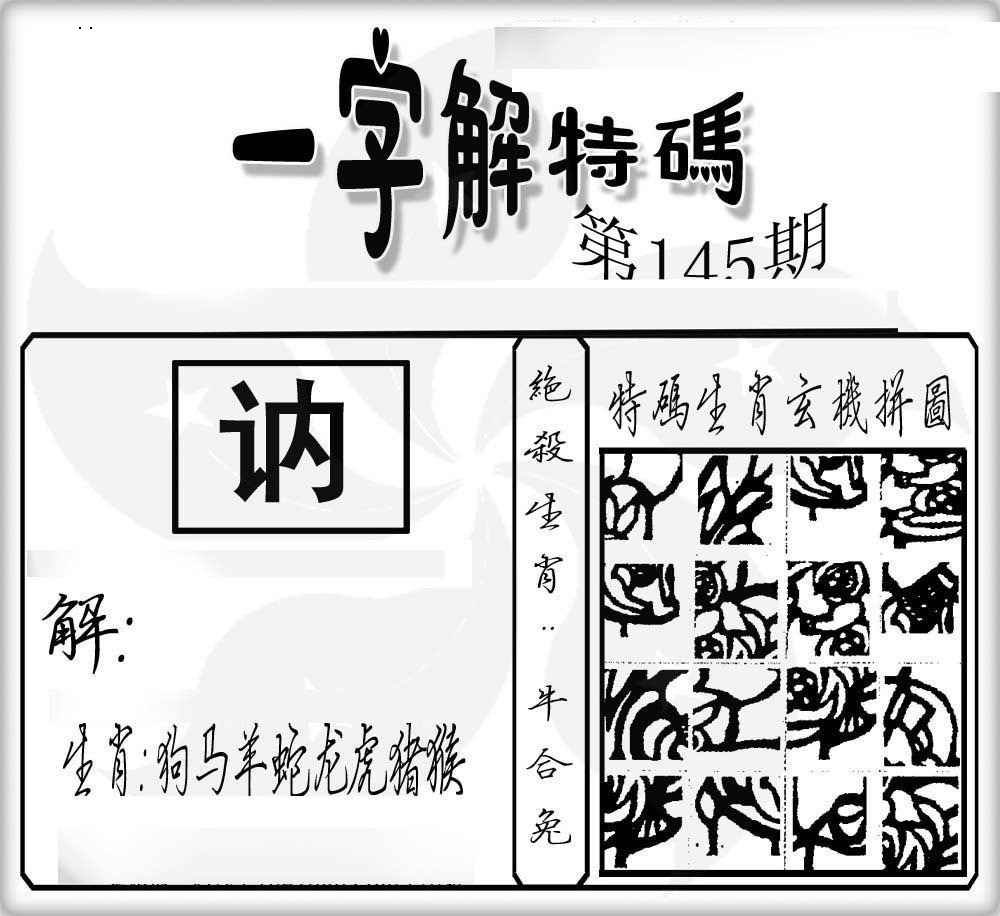 一字解特碼
第145期
讷
解:
生肖:狗马羊蛇龙虎猪猴
絶殺生肖:牛合兔
特碼生肖玄機拼圖